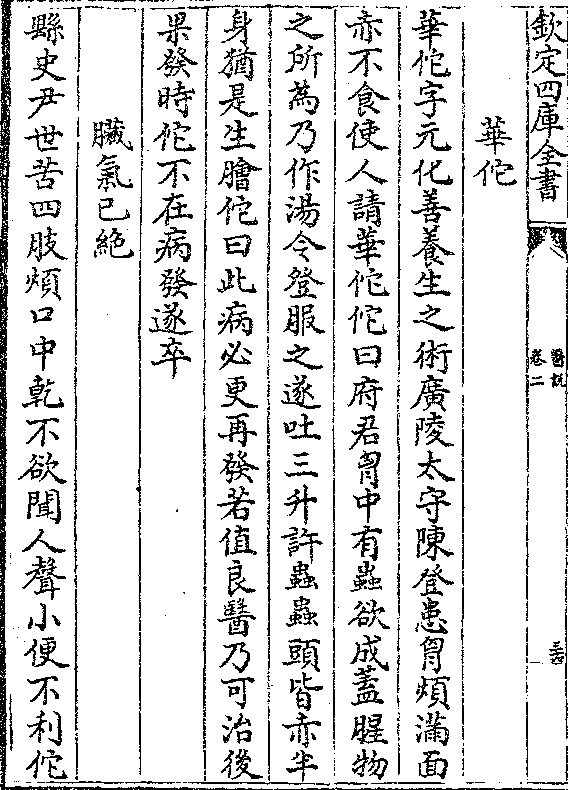 欽定四庫全書
醫説
卷二
三十四
華佗
華佗字元化善養生之術廣陵太守陳登患胷煩滿面
赤不食使人請華佗佗曰府君胷中有蟲欲成蓋腥物
之所為乃作湯令登服之遂吐三升許蟲蟲頭皆赤半
身猶是生膾佗曰此病必更再發若值良醫乃可治後
果發時佗不在病發遂卒
臟氣已絶
縣史尹世苦四肢煩口中乾不欲聞人聲小便不利佗